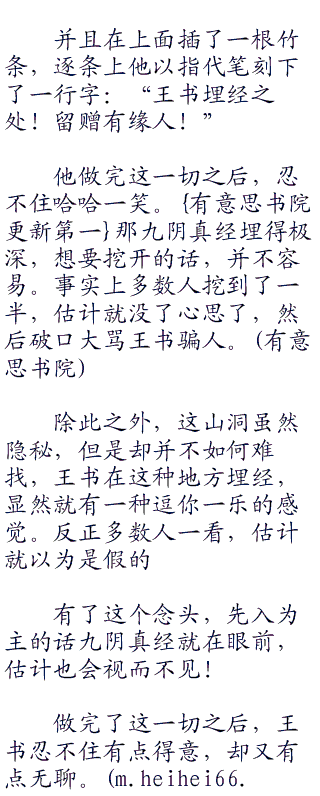 并且在上面插了一根竹
条，逐条上他以指代笔刻下
了一行字：“王书埋经之
处！留赠有缘人！”
他做完这一切之后，忍
不住哈哈一笑。{有意思书院
更新第一}那九阴真经埋得极
深，想要挖开的话，并不容
易。事实上多数人挖到了一
半，估计就没了心思了，然
后破口大骂王书骗人。(有意
思书院)
除此之外，这山洞虽然
隐秘，但是却并不如何难
找，王书在这种地方埋经，
显然就有一种逗你一乐的感
觉。反正多数人一看，估计
就以为是假的
有了这个念头，先入为
主的话九阴真经就在眼前，
估计也会视而不见！
做完了这一切之后，王
书忍不住有点得意，却又有
点无聊。(m.heihei66.